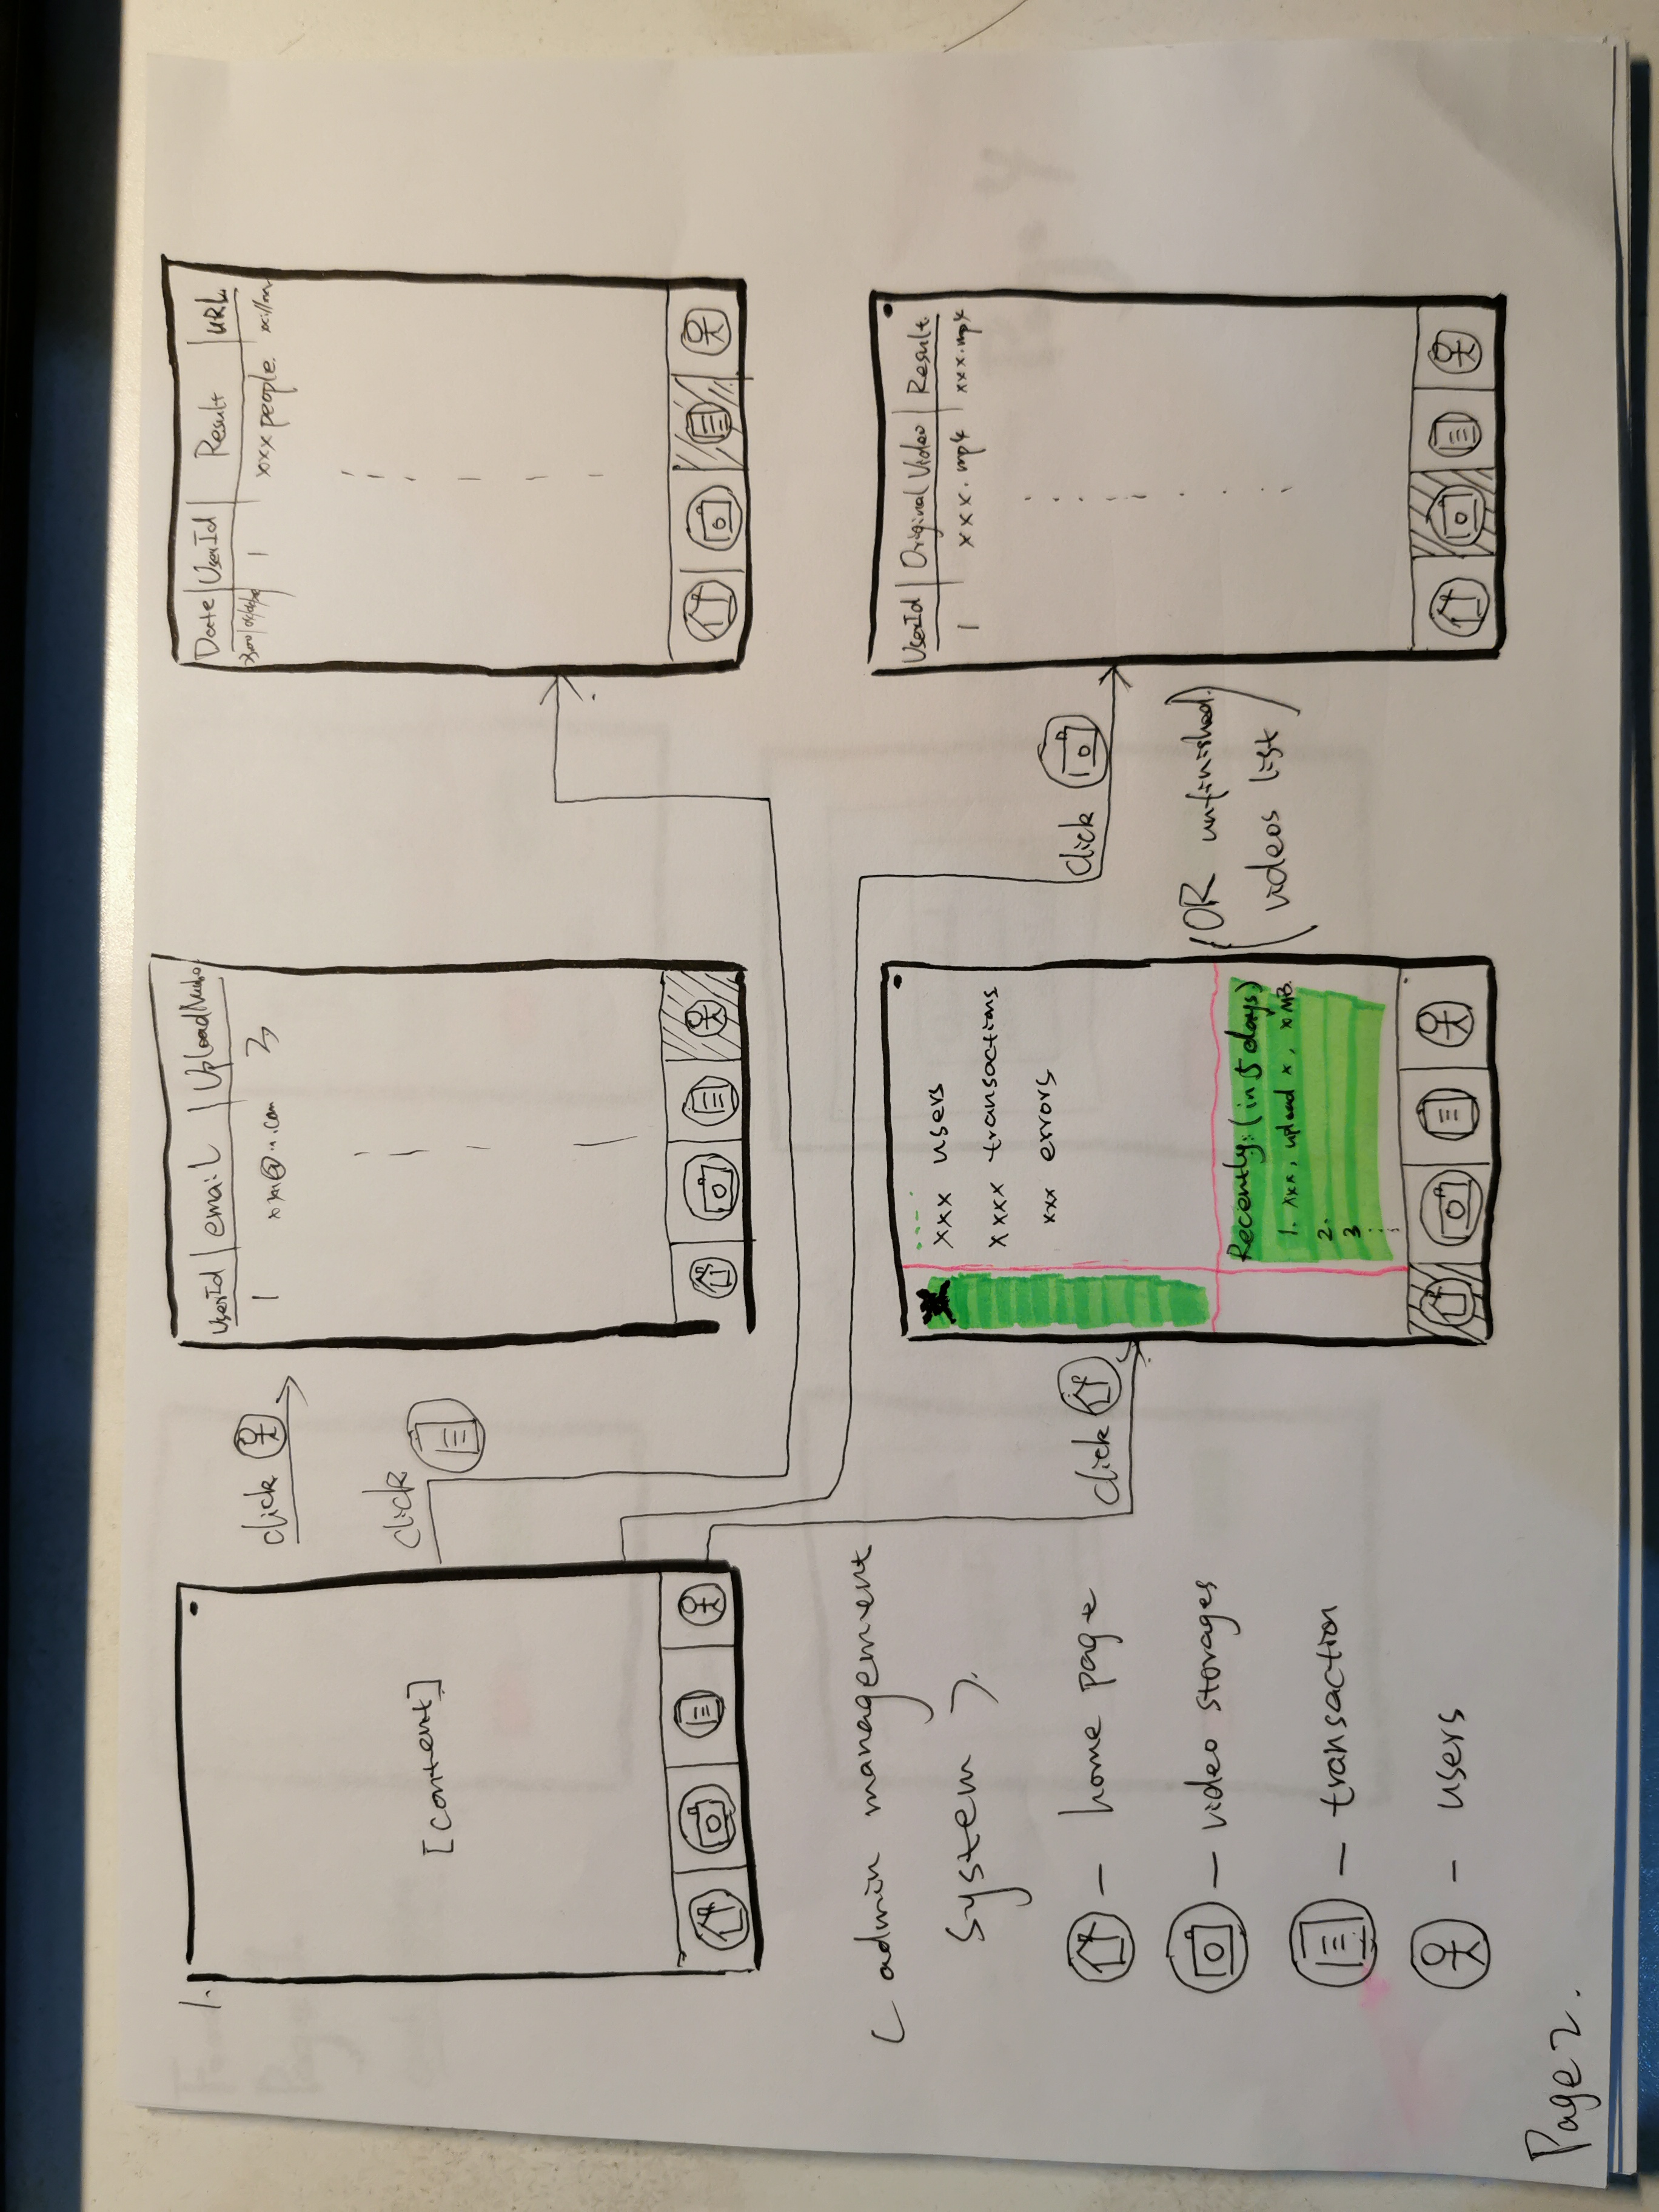 1.
[content]
click
click
UserId | email | UploadNumbe
1
3
Date | UserId | Result | URL
1 xxx people.
( admin management
system ).
- home page
- video storages
- transaction
- users
click
xxx users
xxxx transactions
xxx errors
Recently: (in 5 days)
1. xxx, upload x, xMB.
2.
3
click
(OR unfinished.
videos list)
UserId | Original Video | Result
1 xxx.mp4 xxx.mp4
Page 2.